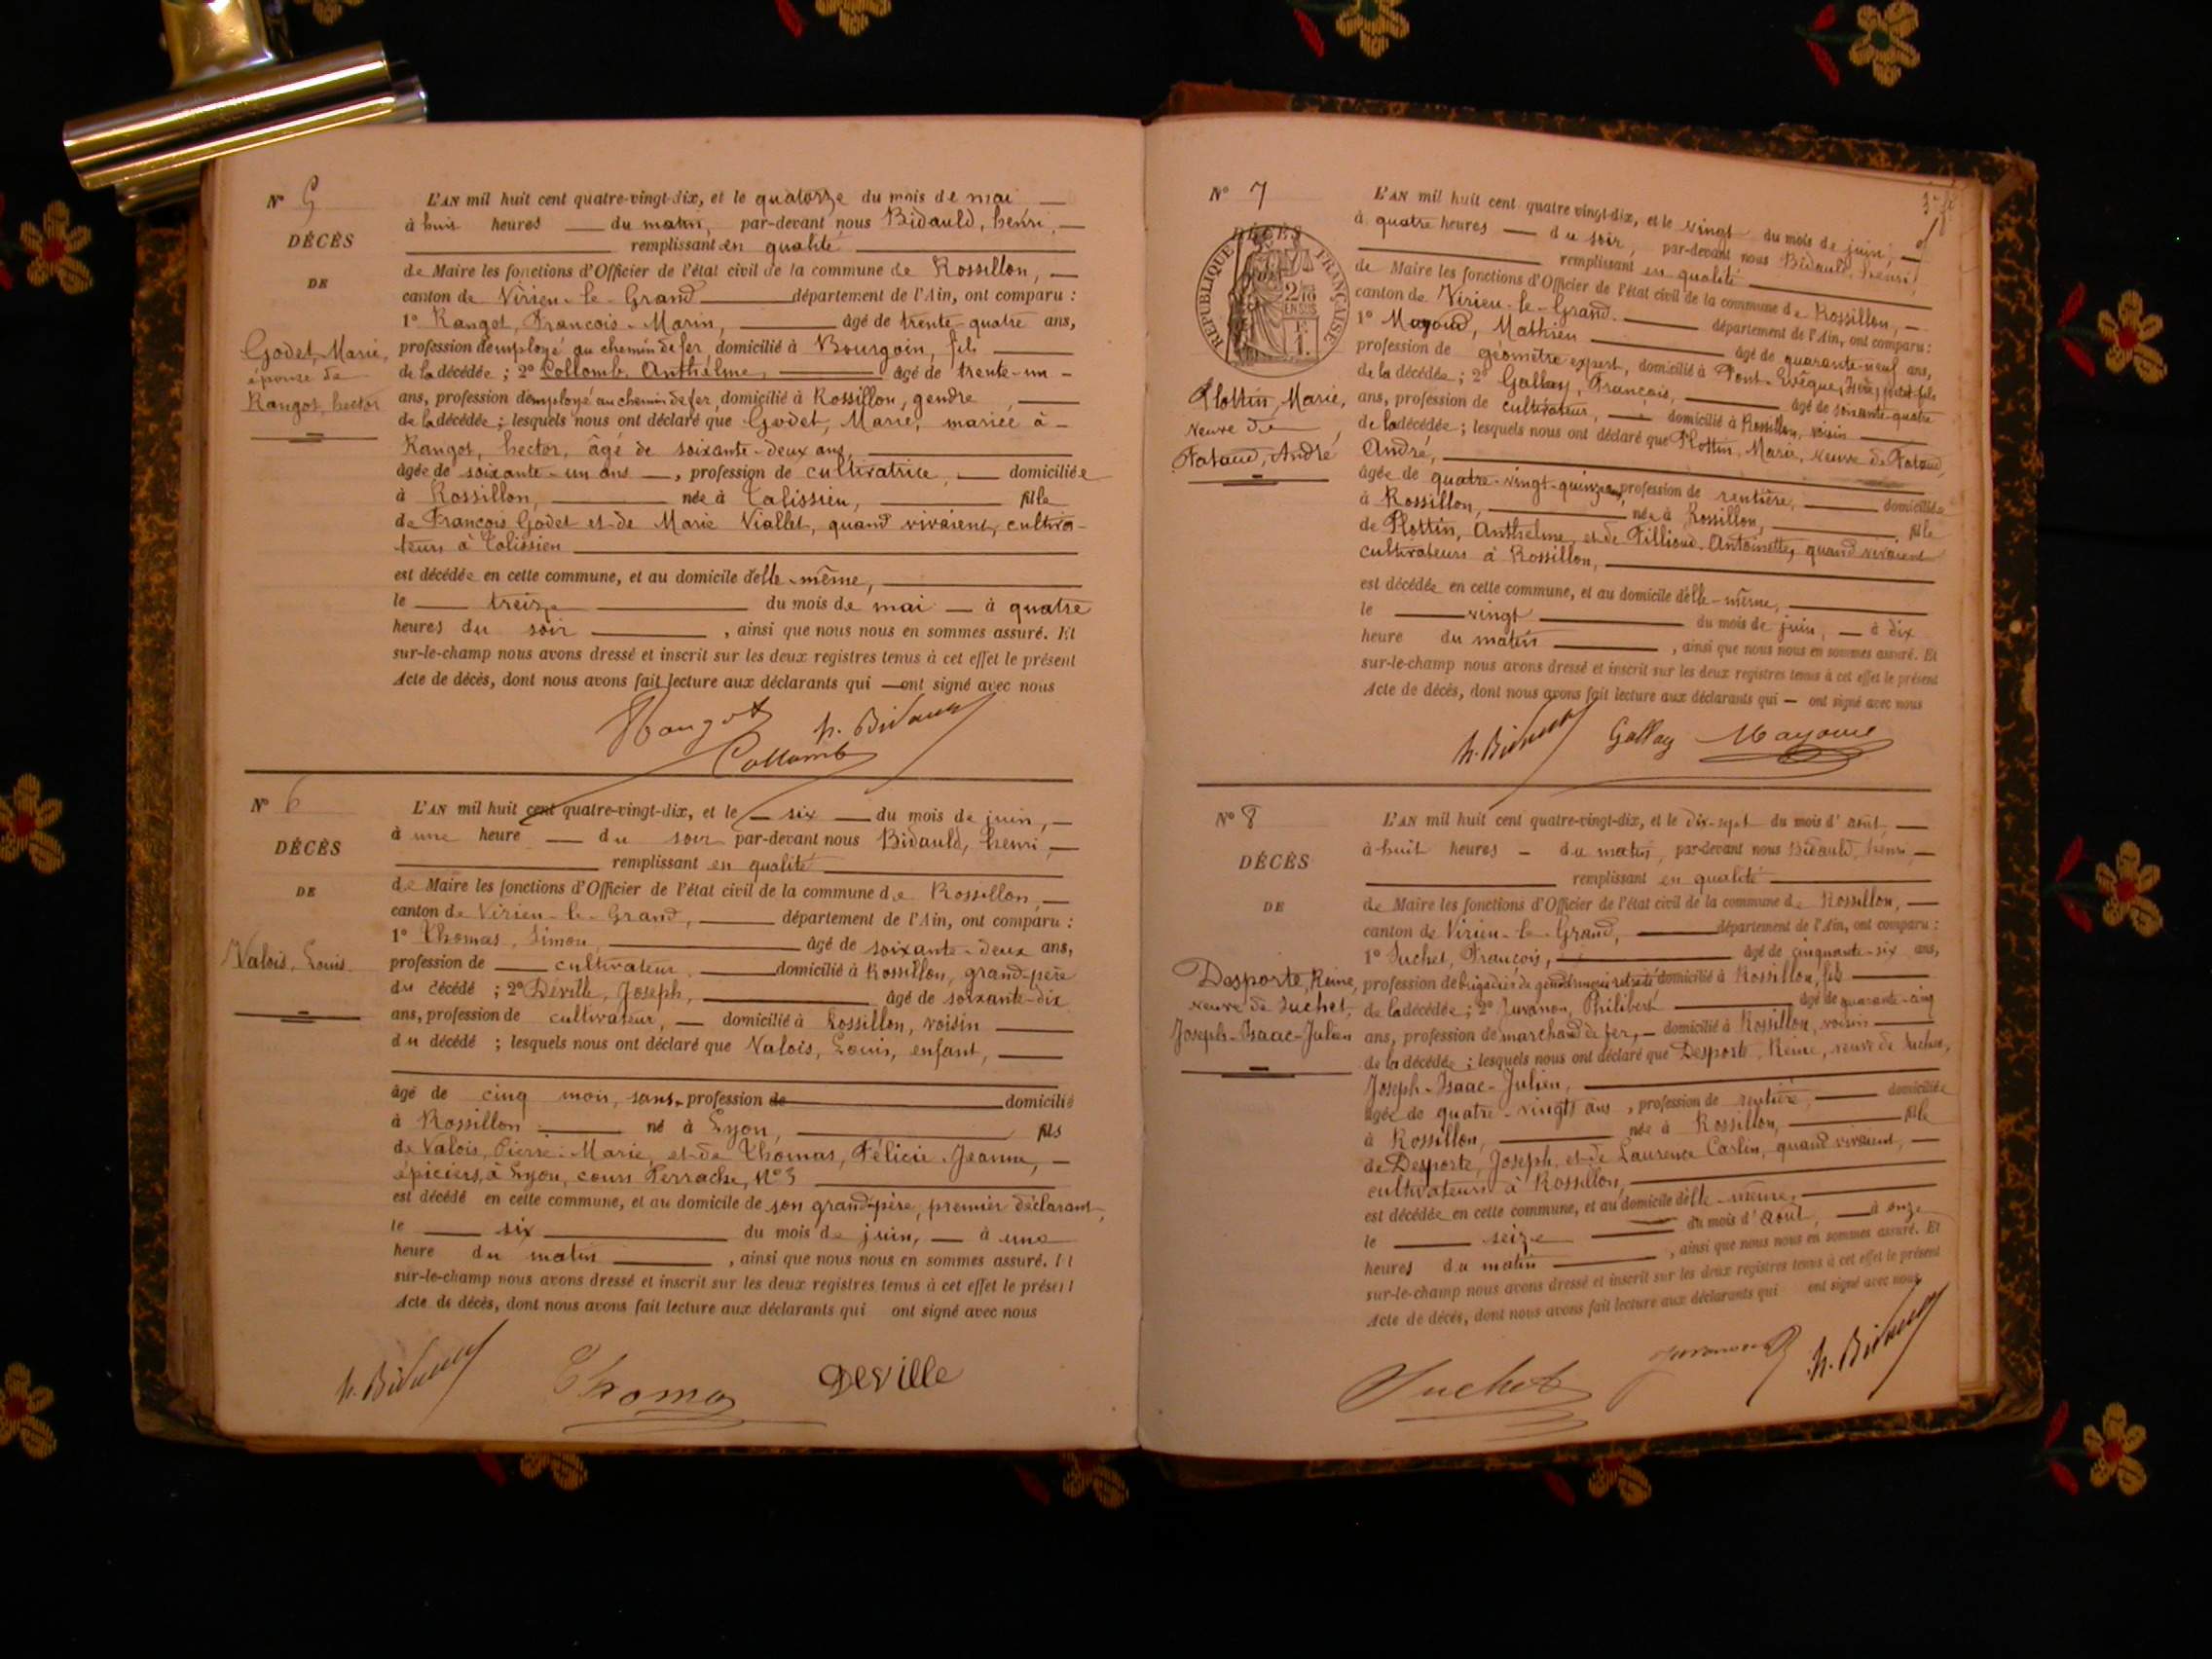 N° 5
DÉCÈS
DE
Godet, Marie,
épouse de
Rangot, hector
L'AN mil huit cent quatre-vingt-dix, et le quatorze du mois de mai
à huit heures du matin, par-devant nous Bidauld, henri,
remplissant en qualité
de Maire les fonctions d'Officier de l'état civil de la commune de Rossillon,
canton de Virieu-le-Grand département de l'Ain, ont comparu :
1° Rangot, François-Marin, âgé de trente-quatre ans,
profession d'employé au chemin de fer, domicilié à Bourgoin, fils
de la décédée ; 2° Collomb, Anthelme, âgé de trente-un
ans, profession d'employé au chemin de fer, domicilié à Rossillon, gendre
de la décédée ; lesquels nous ont déclaré que Godet, Marie, mariée à
Rangot, hector, âgé de soixante-deux ans,
âgée de soixante-un ans, profession de cultivatrice, domiciliée
à Rossillon, née à Talissieu, fille
de François Godet et de Marie Viallet, quand vivaient, cultiva-
teurs à Talissieu
est décédée en cette commune, et au domicile d'elle-même,
le treize du mois de mai à quatre
heures du soir, ainsi que nous nous en sommes assuré. Et
sur-le-champ nous avons dressé et inscrit sur les deux registres tenus à cet effet le présent
Acte de décès, dont nous avons fait lecture aux déclarants qui ont signé avec nous
Rangot h. Bidauld
Collomb
N° 6
DÉCÈS
DE
Valois, Louis
L'AN mil huit cent quatre-vingt-dix, et le six du mois de juin,
à une heure du soir par-devant nous Bidauld, henri,
remplissant en qualité
de Maire les fonctions d'Officier de l'état civil de la commune de Rossillon,
canton de Virieu-le-Grand, département de l'Ain, ont comparu :
1° Thomas, Simon, âgé de soixante-deux ans,
profession de cultivateur, domicilié à Rossillon, grand-père
du décédé ; 2° Déville, Joseph, âgé de soixante-dix
ans, profession de cultivateur, domicilié à Rossillon, voisin
du décédé ; lesquels nous ont déclaré que Valois, Louis, enfant,
âgé de cinq mois, sans profession de domicilié
à Rossillon né à Lyon, fils
de Valois, Pierre-Marie, et de Thomas, Félicie Jeanne,
épiciers, à Lyon, cours Perrache, N° 3
est décédé en cette commune, et au domicile de son grand-père, premier déclarant,
le six du mois de juin, à une
heure du matin, ainsi que nous nous en sommes assuré. Et
sur-le-champ nous avons dressé et inscrit sur les deux registres tenus à cet effet le présent
Acte de décès, dont nous avons fait lecture aux déclarants qui ont signé avec nous
h. Bidauld Thomas Deville
N° 7
DÉCÈS
RÉPUBLIQUE FRANÇAISE
2/10
EN SUS
1 F.
Plottin, Marie,
veuve de
Fataud, André
L'AN mil huit cent quatre vingt-dix, et le vingt du mois de juin,
à quatre heures du soir, par-devant nous Bidauld, henri,
remplissant en qualité
de Maire les fonctions d'Officier de l'état civil de la commune de Rossillon,
canton de Virieu-le-Grand. département de l'Ain, ont comparu :
1° Mayoud, Mathieu âgé de quarante-neuf ans,
profession de géomètre expert, domicilié à Pont-Evêque, Isère, petit-fils
de la décédée ; 2° Gallay, François, âgé de soixante-quatre
ans, profession de cultivateur, domicilié à Rossillon, voisin
de la décédée ; lesquels nous ont déclaré que Plottin, Marie, veuve de Fataud,
André,
âgée de quatre-vingt-quinze ans, profession de rentière, domiciliée
à Rossillon, née à Rossillon, fille
de Plottin, Anthelme, et de Pillioud, Antoinette, quand vivaient
cultivateurs à Rossillon,
est décédée en cette commune, et au domicile d'elle-même,
le vingt du mois de juin, à dix
heure du matin, ainsi que nous nous en sommes assuré. Et
sur-le-champ nous avons dressé et inscrit sur les deux registres tenus à cet effet le présent
Acte de décès, dont nous avons fait lecture aux déclarants qui ont signé avec nous
h. Bidauld Gallay Mayoud
N° 8
DÉCÈS
DE
Desporte, Reine,
veuve de Suchet,
Joseph-Isaac-Julien
L'AN mil huit cent quatre-vingt-dix, et le dix-sept du mois d'août,
à huit heures du matin, par-devant nous Bidauld, henri,
remplissant en qualité
de Maire les fonctions d'Officier de l'état civil de la commune de Rossillon,
canton de Virieu-le-Grand, département de l'Ain, ont comparu :
1° Suchet, François, âgé de cinquante-six ans,
profession de brigadier de gendarmerie retraité domicilié à Rossillon, fils
de la décédée ; 2° Juvanon, Philibert âgé de quarante-cinq
ans, profession de marchand de fer, domicilié à Rossillon, voisin
de la décédée ; lesquels nous ont déclaré que Desporte, Reine, veuve de Suchet,
Joseph-Isaac-Julien,
âgée de quatre-vingts ans, profession de rentière, domiciliée
à Rossillon, née à Rossillon, fille
de Desporte, Joseph, et de Laurence Carlin, quand vivaient,
cultivateurs à Rossillon,
est décédée en cette commune, et au domicile d'elle-même,
le seize du mois d'août, à onze
heures du matin, ainsi que nous nous en sommes assuré. Et
sur-le-champ nous avons dressé et inscrit sur les deux registres tenus à cet effet le présent
Acte de décès, dont nous avons fait lecture aux déclarants qui ont signé avec nous
Suchet Juvanon h. Bidauld